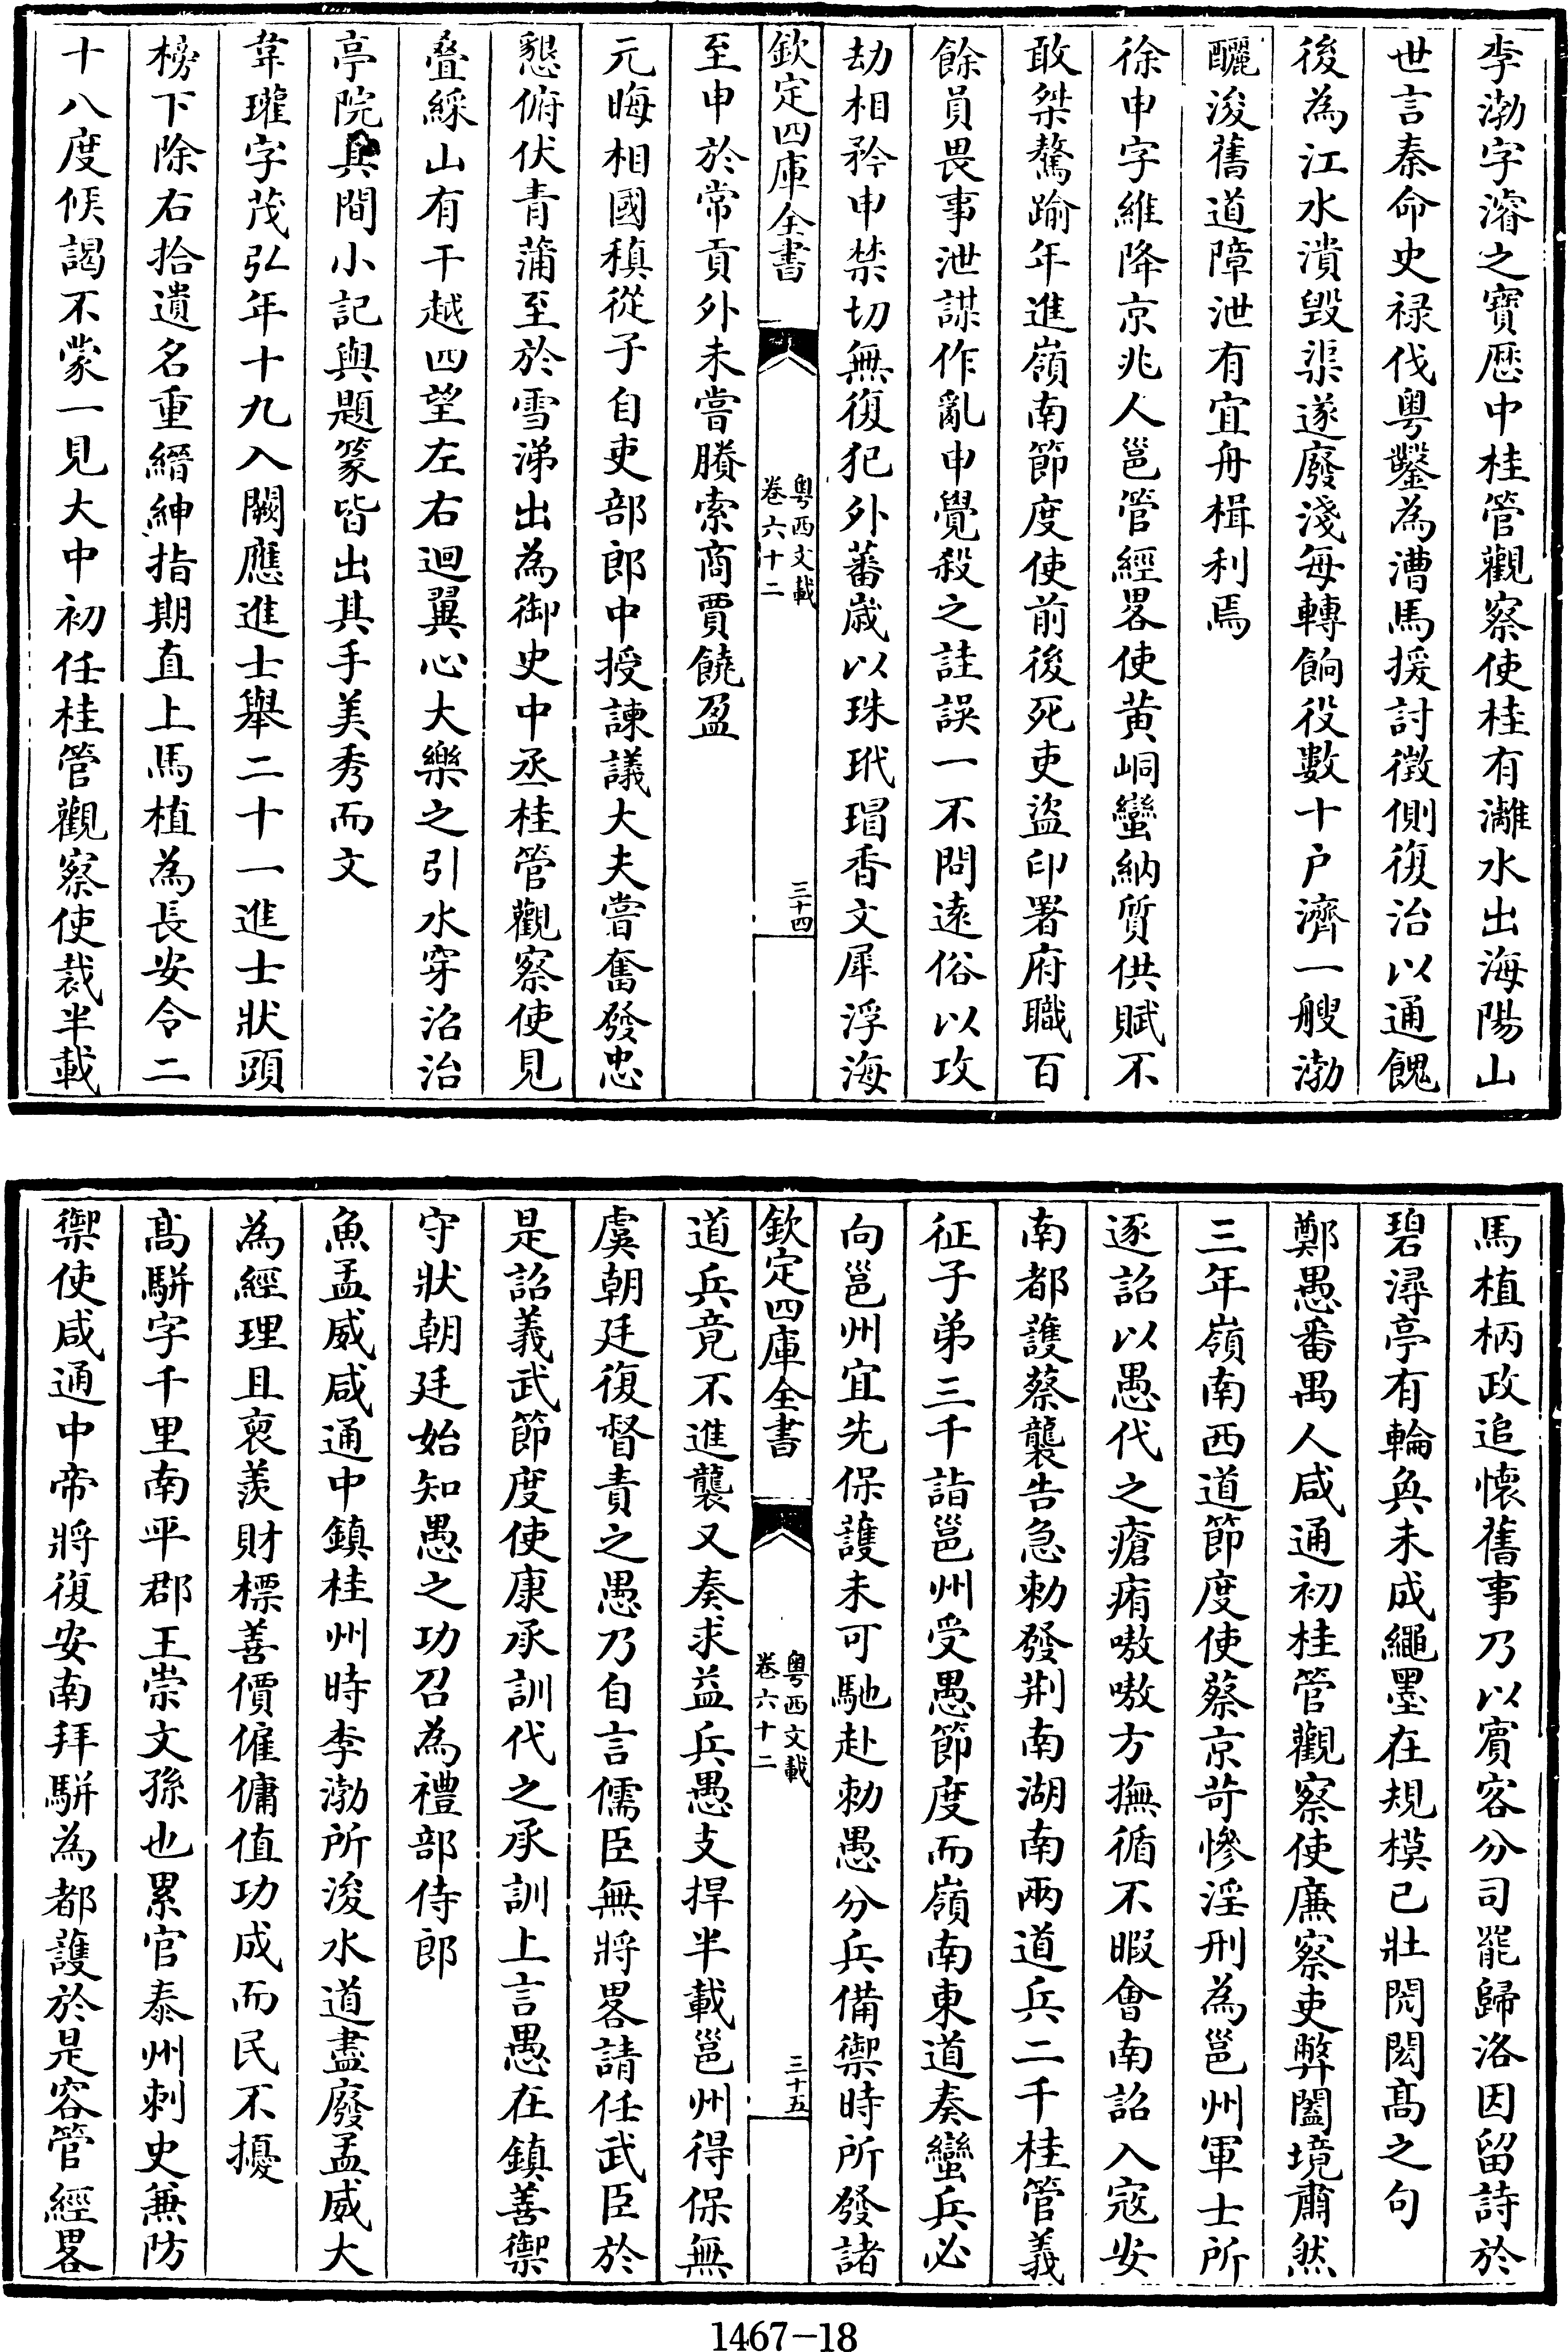 李渤字濬之寶厯中桂管觀察使桂有灕水出海陽山
世言秦命史禄伐粤鑿為漕馬援討徴側復治以通餽
後為江水潰毁渠遂廢淺每轉餉役數十户濟一艘渤
釃浚舊道障泄有宜舟楫利焉
徐申字維降京兆人邕管經畧使黄峒蠻納質供賦不
敢桀驁踰年進嶺南節度使前後死吏盗印署府職百
餘員畏事泄謀作亂申覺殺之詿誤一不問遠俗以攻
劫相矜申禁切無復犯外蕃歳以珠玳瑁香文犀浮海
欽定四庫全書
粤西文載
卷六十二
三十四
至申於常貢外未嘗賸索商賈饒盈
元晦相國稹從子自吏部郎中授諫議大夫嘗奮發忠
懇俯伏青蒲至於雪涕出為御史中丞桂管觀察使見
叠綵山有干越四望左右迴翼心大樂之引水穿沿治
亭院其間小記與題篆皆出其手美秀而文
韋瓘字茂弘年十九入闕應進士舉二十一進士狀頭
榜下除右拾遺名重縉紳指期直上馬植為長安令二
十八度候謁不蒙一見大中初任桂管觀察使裁半載
馬植柄政追懐舊事乃以賓客分司罷歸洛因留詩於
碧潯亭有輪奐未成繩墨在規模已壯閌閎髙之句
鄭愚番禺人咸通初桂管觀察使廉察吏弊闔境肅然
三年嶺南西道節度使蔡京苛慘淫刑為邕州軍士所
逐詔以愚代之瘡痏嗷嗷方撫循不暇會南詔入寇安
南都護蔡襲告急勅發荆南湖南兩道兵二千桂管義
征子弟三千詣邕州受愚節度而嶺南東道奏蠻兵必
向邕州宜先保護未可馳赴勅愚分兵備禦時所發諸
欽定四庫全書
粤西文載
卷六十二
三十五
道兵竟不進襲又奏求益兵愚支捍半載邕州得保無
虞朝廷復督責之愚乃自言儒臣無將畧請任武臣於
是詔義武節度使康承訓代之承訓上言愚在鎮善禦
守狀朝廷始知愚之功召為禮部侍郎
魚孟威咸通中鎮桂州時李渤所浚水道盡廢孟威大
為經理且裒羨財標善價僱傭值功成而民不擾
髙駢字千里南平郡王崇文孫也累官秦州刺史兼防
禦使咸通中帝將復安南拜駢為都護於是容管經畧
1467-18